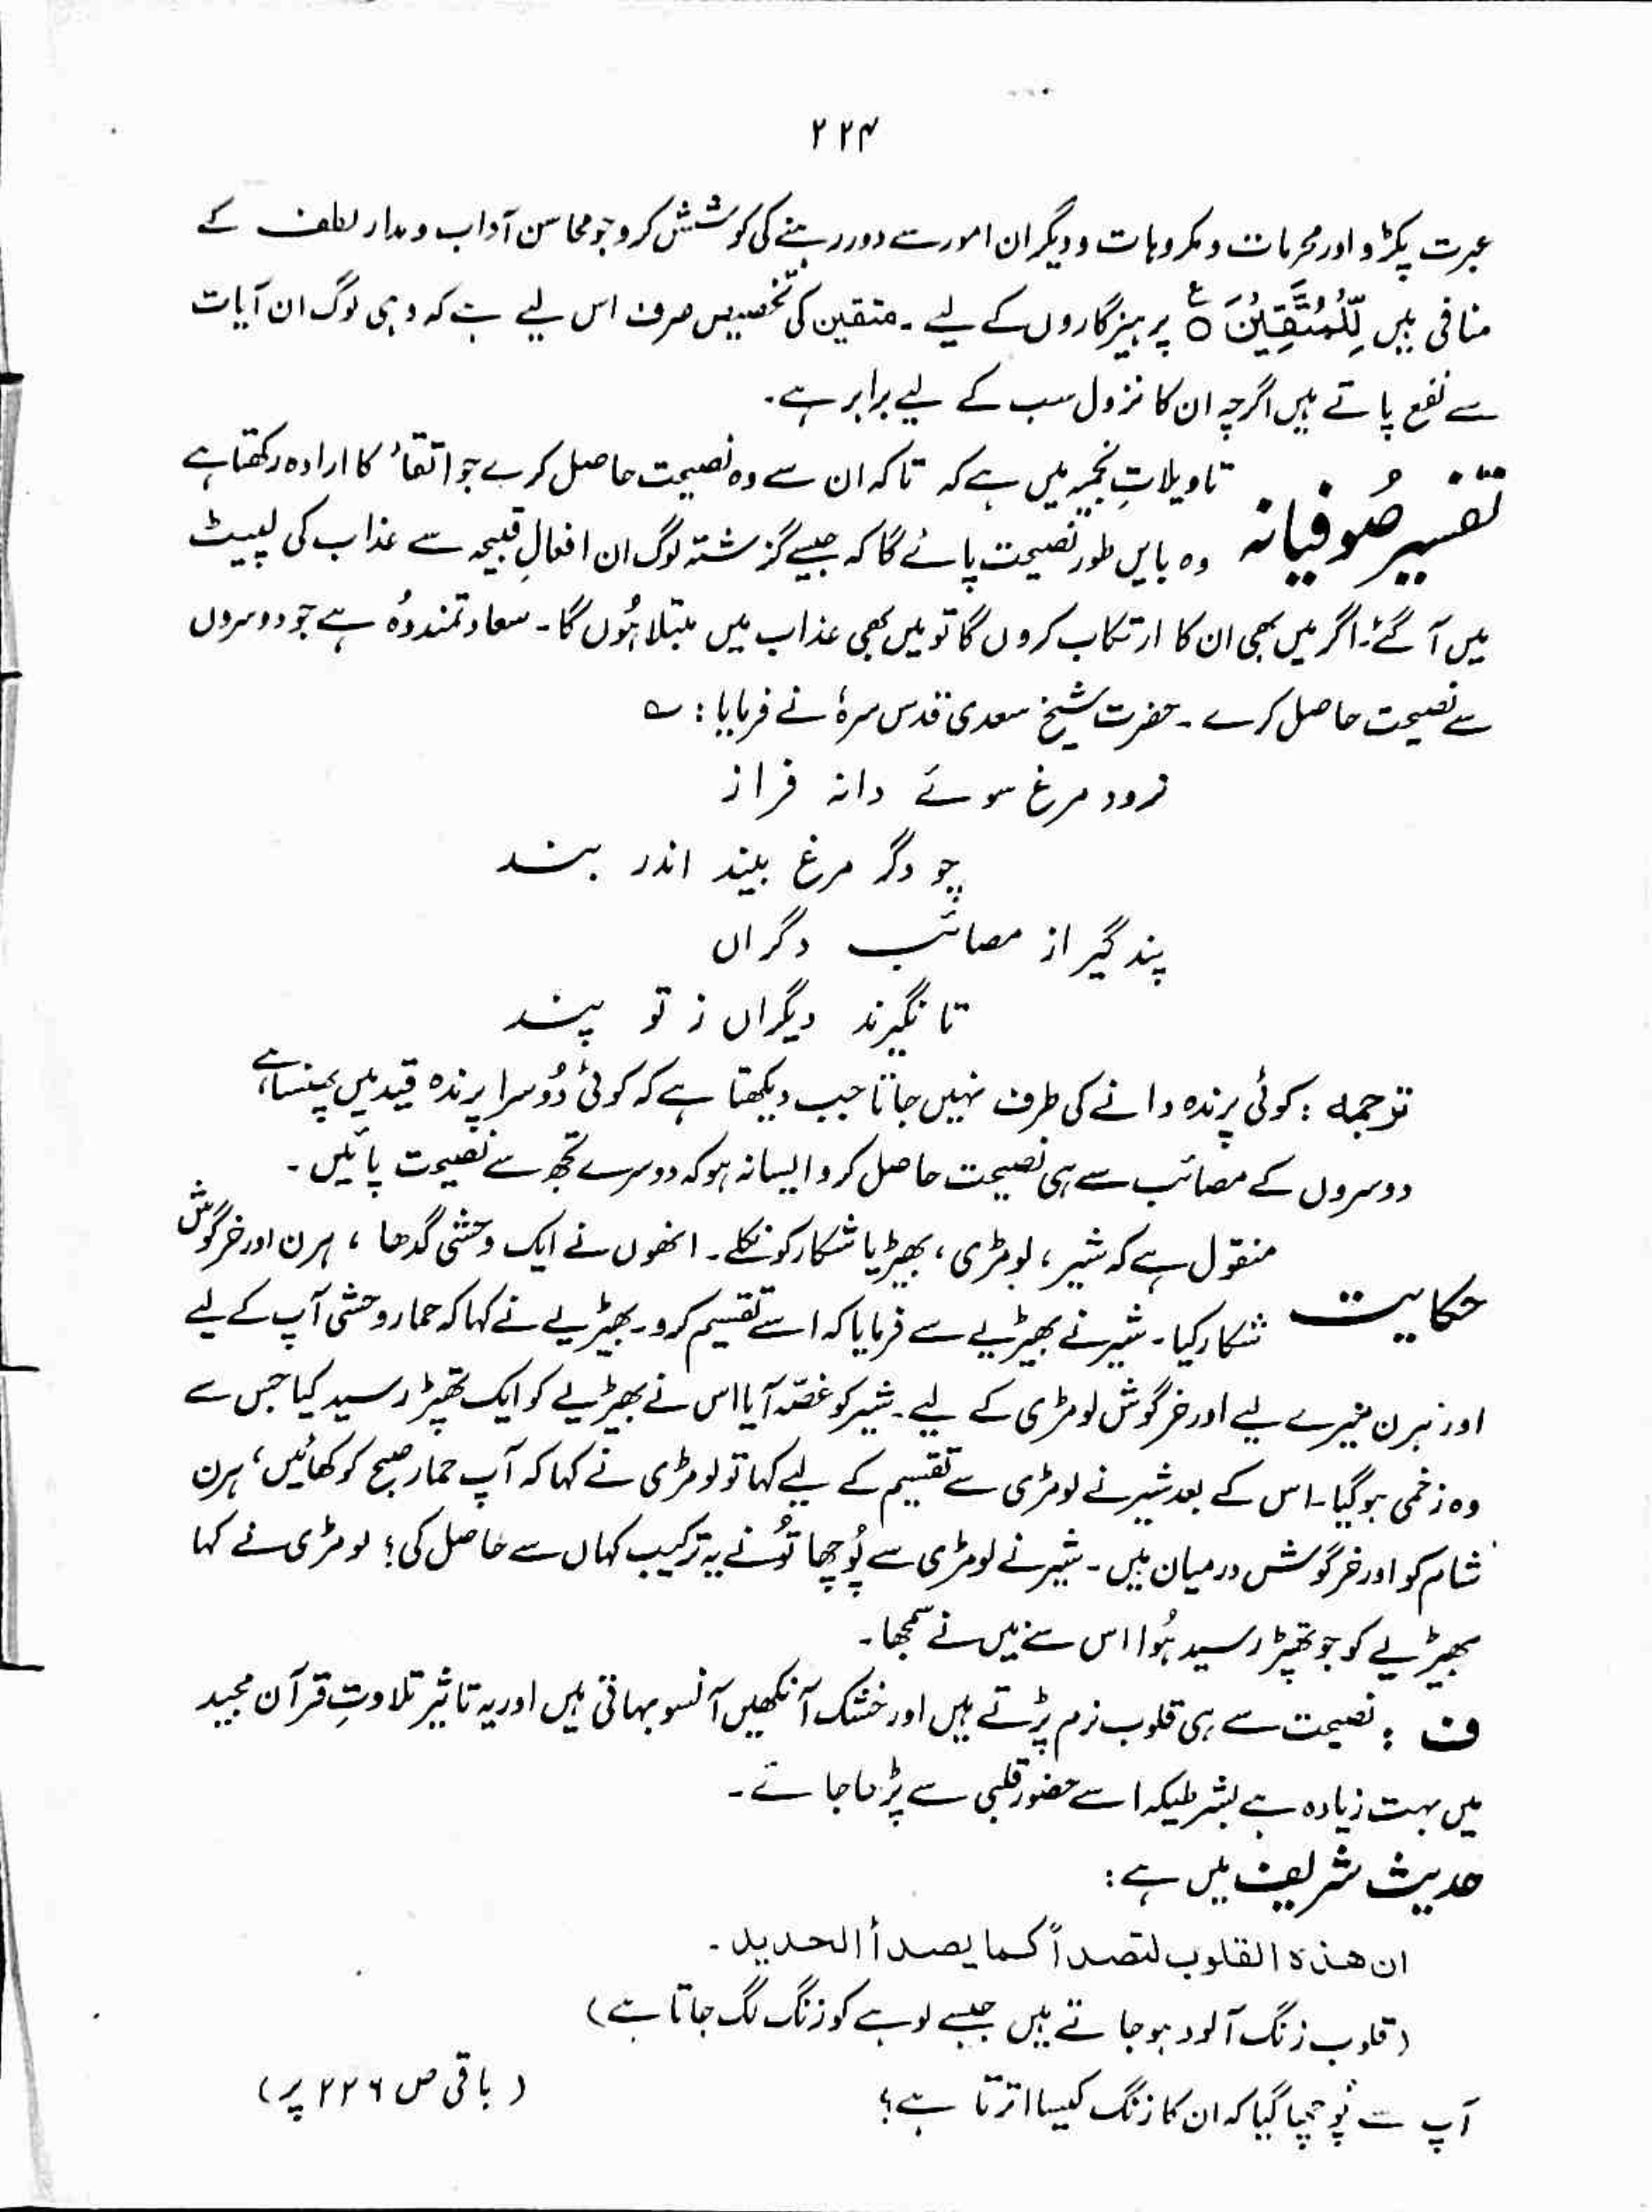 ۲۲۴
عبرت پکڑو اور محرمات و مکروہات و دیگر ان امور سے دور رہنے کی کوشش کرو جو محاسن آداب و مدار لطف کے
منافی ہیں لِّلْمُتَّقِيْنَ ○ ع پرہیزگاروں کے لیے ۔ متقین کی تخصیص صرف اس لیے ہے کہ وہی لوگ ان آیات
سے نفع پاتے ہیں اگرچہ ان کا نزول سب کے لیے برابر ہے۔
تفسیر صُوفیانہ تاویلاتِ نجمیہ میں ہے کہ تاکہ ان سے وہ نصیحت حاصل کرے جو اتقاء کا ارادہ رکھتا ہے
وہ بایں طور نصیحت پائے گا کہ جیسے گزشتہ لوگ ان افعالِ قبیحہ سے عذاب کی لپیٹ
میں آ گئے؛ اگر میں بھی ان کا ارتکاب کروں گا تو میں بھی عذاب میں مبتلا ہُوں گا۔ سعادتمند وُہ ہے جو دوسروں
سے نصیحت حاصل کرے ۔ حضرت شیخ سعدی قدس سرہٗ نے فرمایا : ؎
نرود مرغ سوئے دانہ فراز
چو دگر مرغ بیند اندر بند
پند گیر از مصائب دگراں
تا نگیرند دیگراں ز تو پند
ترجمہ : کوئی پرندہ دانے کی طرف نہیں جاتا جب دیکھتا ہے کہ کوئی دُوسرا پرندہ قید میں پھنسا ہے
دوسروں کے مصائب سے ہی نصیحت حاصل کرو ایسا نہ ہو کہ دوسرے تجھ سے نصیحت پائیں ۔
حکایت منقول ہے کہ شیر ، لومڑی ، بھیڑیا شکار کو نکلے ۔ انھوں نے ایک وحشی گدھا ، ہرن اور خرگوش
شکار کیا ۔ شیر نے بھیڑیے سے فرمایا کہ اسے تقسیم کرو ۔ بھیڑیے نے کہا کہ حمار وحشی آپ کے لیے
اور ہرن میرے لیے اور خرگوش لومڑی کے لیے ۔ شیر کو غصّہ آیا اس نے بھیڑیے کو ایک تھپڑ رسید کیا جس سے
وہ زخمی ہو گیا ۔ اس کے بعد شیر نے لومڑی سے تقسیم کے لیے کہا تو لومڑی نے کہا کہ آپ حمار صبح کو کھائیں ، ہرن
شام کو اور خرگوش درمیان میں ۔ شیر نے لومڑی سے پُوچھا تُو نے یہ ترکیب کہاں سے حاصل کی ؟ لومڑی نے کہا
بھیڑیے کو جو تھپڑ رسید ہُوا اس سے میں نے سمجھا ۔
ف : نصیحت سے ہی قلوب نرم پڑتے ہیں اور خشک آنکھیں آنسو بہاتی ہیں اور یہ تاثیر تلاوتِ قرآن مجید
میں بہت زیادہ ہے بشرطیکہ اسے حضور قلبی سے پڑھا جائے ۔
حدیث شریف میں ہے :
ان هذه القلوب لتصدأ كما يصدأ الحديد ۔
( قلوب زنگ آلود ہو جاتے ہیں جیسے لوہے کو زنگ لگ جاتا ہے )
آپ سے پُوچھا گیا کہ ان کا زنگ کیسا اترتا ہے ؟
( باقی ص ۲۲۶ پر )